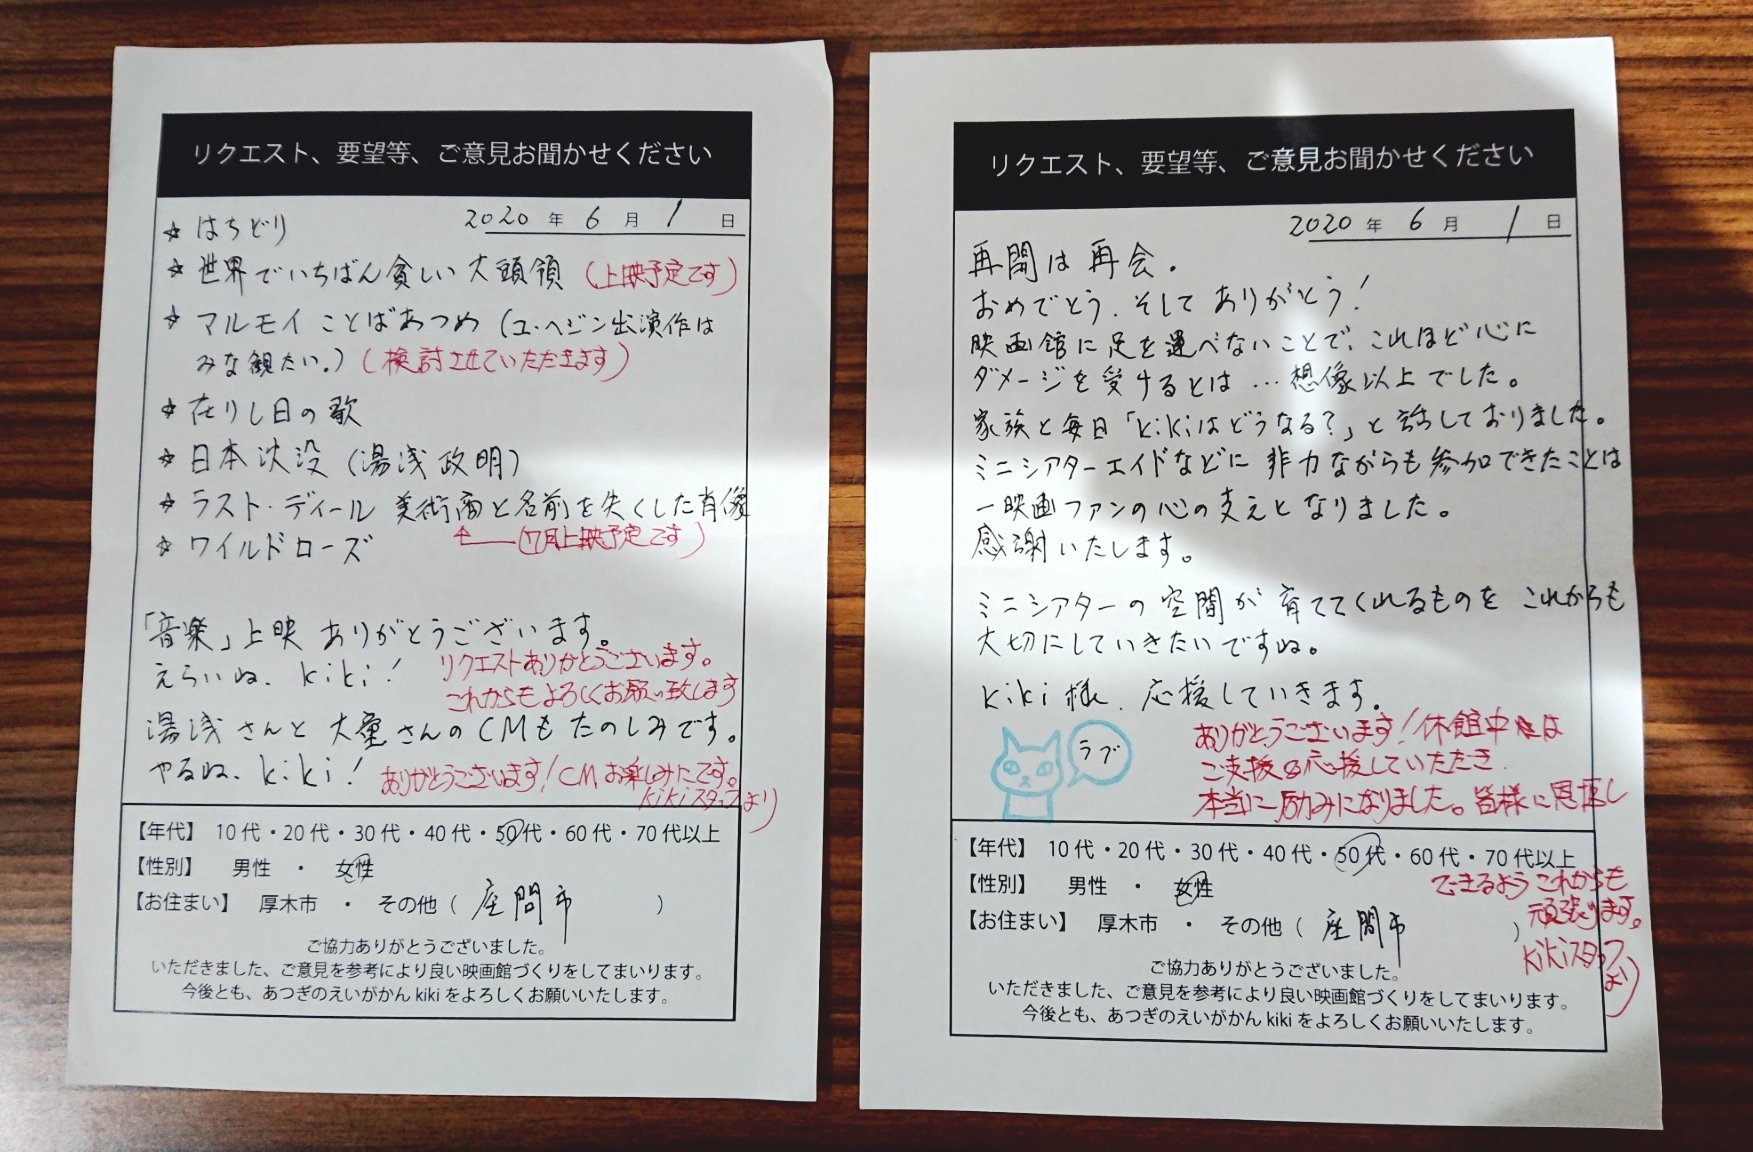 リクエスト、要望等、ご意見お聞かせください
2020 年 6 月 1 日
☆ はちどり
☆ 世界でいちばん貧しい大頭領 (上映予定です)
☆ マルモイ ことばあつめ (ユ・ヘジン出演作は
みな観たい。) (検討させていただきます)
☆ 在りし日の歌
☆ 日本沈没 (湯浅政明)
☆ ラスト・ディール 美術商と名前を失くした肖像
☆ ワイルドローズ ←(7月上映予定です)
「音楽」上映 ありがとうございます。
えらいね、kiki!
リクエストありがとうございます。
これからもよろしくお願い致します
湯浅さんと大童さんのCMもたのしみです。
やるね、kiki!
ありがとうございます!CMお楽しみにです。
kikiスタッフより
【年代】 10代・20代・30代・40代・50代・60代・70代以上
【性別】 男性 ・ 女性
【お住まい】 厚木市 ・ その他 ( 座間市 )
ご協力ありがとうございました。
いただきました、ご意見を参考により良い映画館づくりをしてまいります。
今後とも、あつぎのえいがかん kiki をよろしくお願いいたします。
リクエスト、要望等、ご意見お聞かせください
2020 年 6 月 1 日
再開は再会.
おめでとう.そしてありがとう!
映画館に足を運べないことで、これほど心に
ダメージを受けるとは…想像以上でした。
家族と毎日「kikiはどうなる?」と話しておりました。
ミニシアターエイドなどに非力ながらも参加できたことは
一映画ファンの心の支えとなりました。
感謝いたします。
ミニシアターの空間が育ててくれるものを これからも
大切にしていきたいですね。
kiki様、応援していきます。
ラブ
ありがとうございます!休館中は
ご支援の応援していただき
本当に励みになりました。皆様に恩返し
できるようこれからも
頑張ります。
kikiスタッフ
より
【年代】 10代・20代・30代・40代・50代・60代・70代以上
【性別】 男性 ・ 女性
【お住まい】 厚木市 ・ その他 ( 座間市 )
ご協力ありがとうございました。
いただきました、ご意見を参考により良い映画館づくりをしてまいります。
今後とも、あつぎのえいがかん kiki をよろしくお願いいたします。